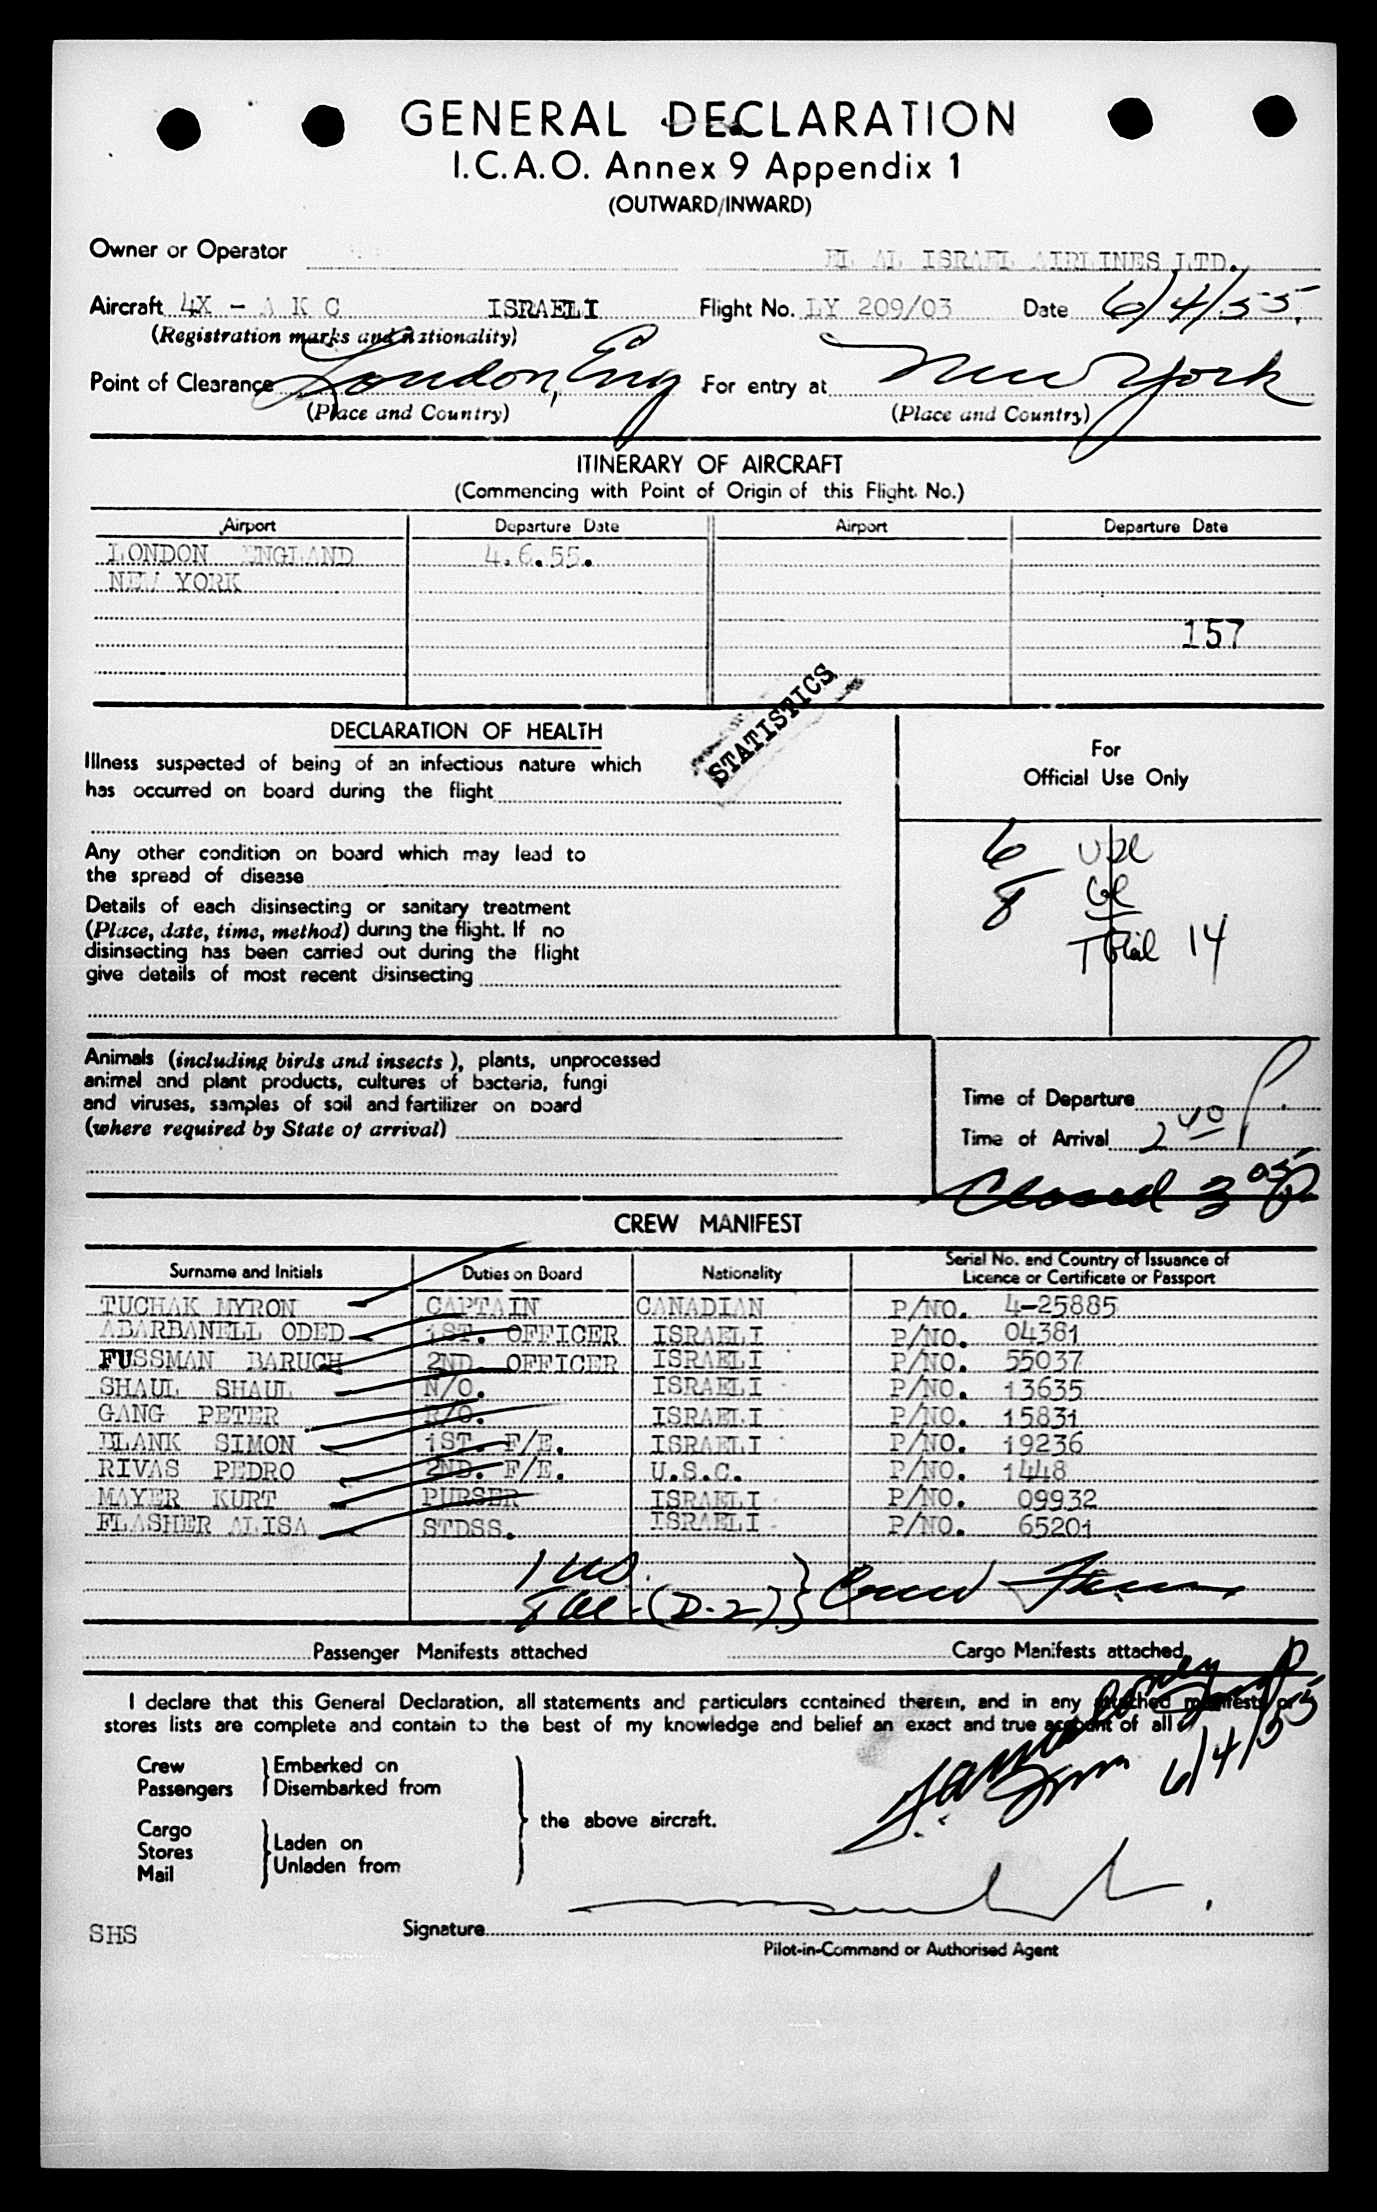 GENERAL DECLARATION
I.C.A.O. Annex 9 Appendix 1
(OUTWARD/INWARD)
Owner or Operator EL AL ISRAEL AIRLINES LTD.
Aircraft 4X - A K C ISRAELI Flight No. LY 209/03 Date 6/4/55.
(Registration marks and Nationality)
Point of Clearance London, Eng For entry at New York
(Place and Country) (Place and Country)
ITINERARY OF AIRCRAFT
(Commencing with Point of Origin of this Flight No.)
Airport Departure Date Airport Departure Date
LONDON ENGLAND 4.6.55.
NEW YORK
157
STATISTICS
DECLARATION OF HEALTH
Illness suspected of being of an infectious nature which
has occurred on board during the flight
For
Official Use Only
Any other condition on board which may lead to
the spread of disease
Details of each disinsecting or sanitary treatment
(Place, date, time, method) during the flight. If no
disinsecting has been carried out during the flight
give details of most recent disinsecting
6
8
Total 14
Animals (including birds and insects), plants, unprocessed
animal and plant products, cultures of bacteria, fungi
and viruses, samples of soil and fertilizer on board
(where required by State of arrival)
Time of Departure
Time of Arrival 2 40 P.
Closed 3 05 P
CREW MANIFEST
Surname and Initials Duties on Board Nationality Serial No. and Country of Issuance of Licence or Certificate or Passport
TUCHAK MYRON CAPTAIN CANADIAN P/NO. 4-25885
ABARBANELL ODED 1ST. OFFICER ISRAELI P/NO. 04381
FUSSMAN BARUCH 2ND OFFICER ISRAELI P/NO. 55037
SHAUL SHAUL N/O. ISRAELI P/NO. 13635
GANG PETER R/O. ISRAELI P/NO. 15831
BLANK SIMON 1ST. F/E. ISRAELI P/NO. 19236
RIVAS PEDRO 2ND. F/E. U.S.C. P/NO. 1448
MAYER KURT PURSER ISRAELI P/NO. 09932
FLASHER ALISA STDSS. ISRAELI P/NO. 65201
(D-2)
Passenger Manifests attached Cargo Manifests attached
I declare that this General Declaration, all statements and particulars contained therein, and in any attached manifests or
stores lists are complete and contain to the best of my knowledge and belief an exact and true account of all
6/4/55
Crew
Passengers
Embarked on
Disembarked from
Cargo
Stores
Mail
Laden on
Unladen from
the above aircraft.
SHS
Signature
Pilot-in-Command or Authorised Agent